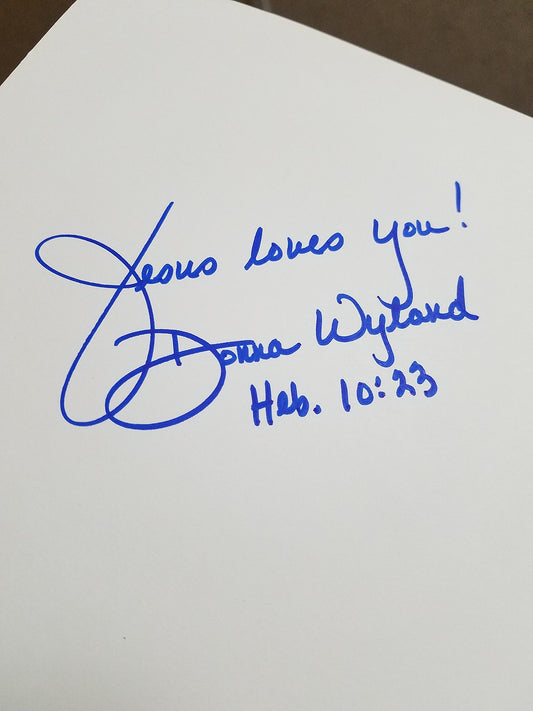 Jesus loves you!
Donna Wyland
Heb. 10:23